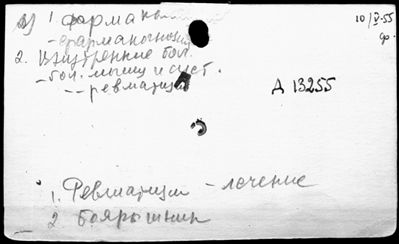 1 фармак
- фармакогнозия
10/X-55
2. Внутренние бол.
- бол. мышц и суст.
-- ревматизм
Д 13255
1. Ревматизм - лечение
2 Боярышник